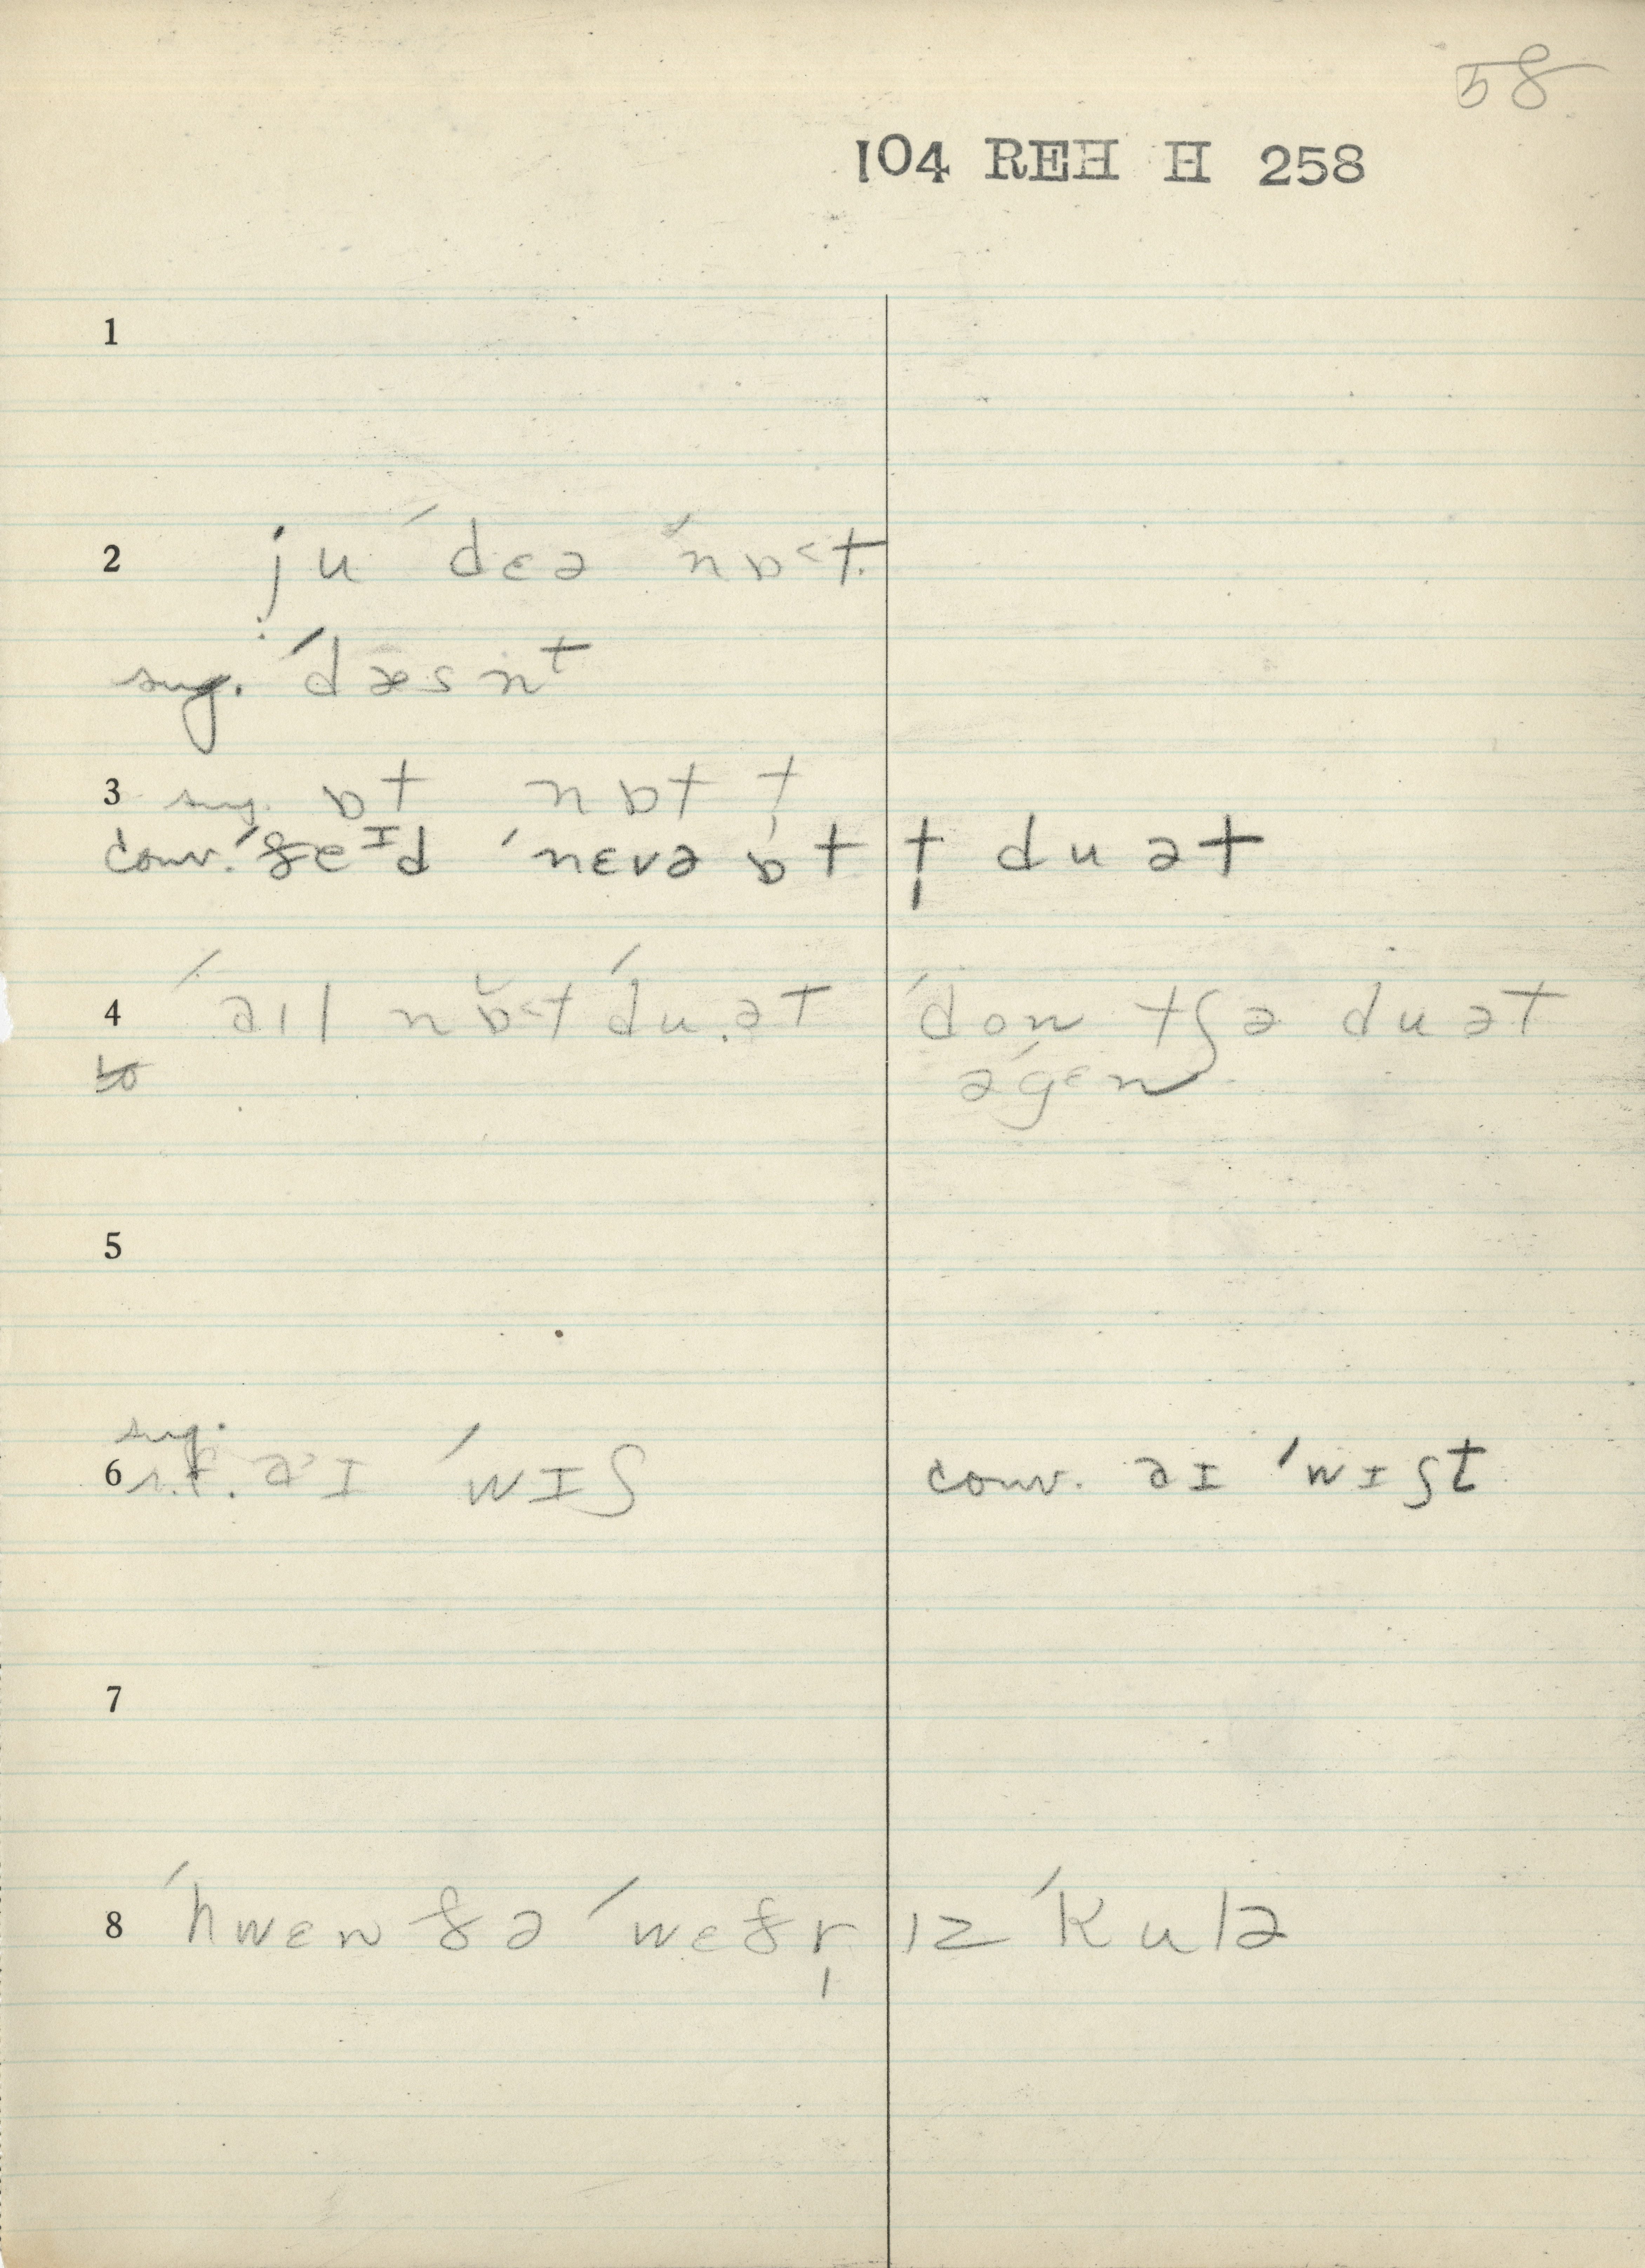 58
104 REH H 258
1
2 ju ˈdɛə ˈnɒ˂t
sug. ˈdæsnt
3 sug. ɒt nɒt t̩
conv. ˈðeɪd ˈnɛvə ɒt t̩ du ət
4 ˈaɪl nɒ̆˂t ˈdu ət ˈdon tʃə du ət
əˈgɛn
5
sug.
6 s.f. a˃ɪ ˈwɪʃ conv. aɪ ˈwɪʃt
7
8 ˈhwɛn ðə ˈwɛðr̩ ɪz ˈkulə